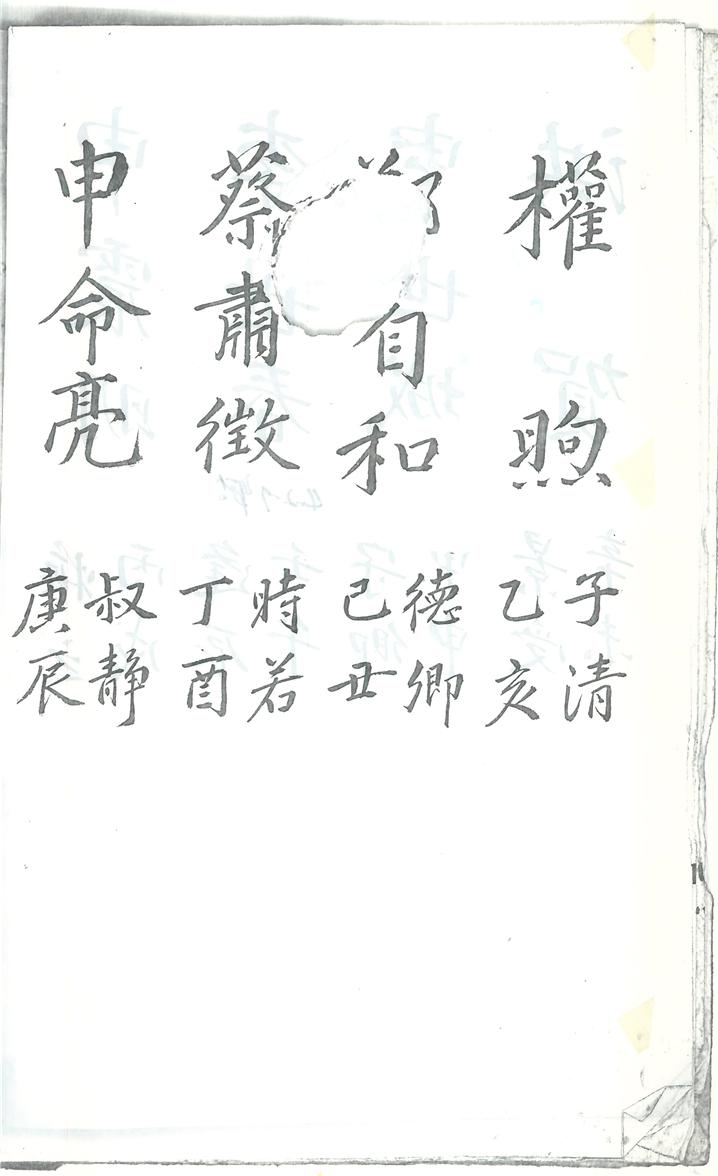 權煦
子清
乙亥
自和
德卿
己丑
蔡肅徵
時若
丁酉
申命亮
叔静
庚辰